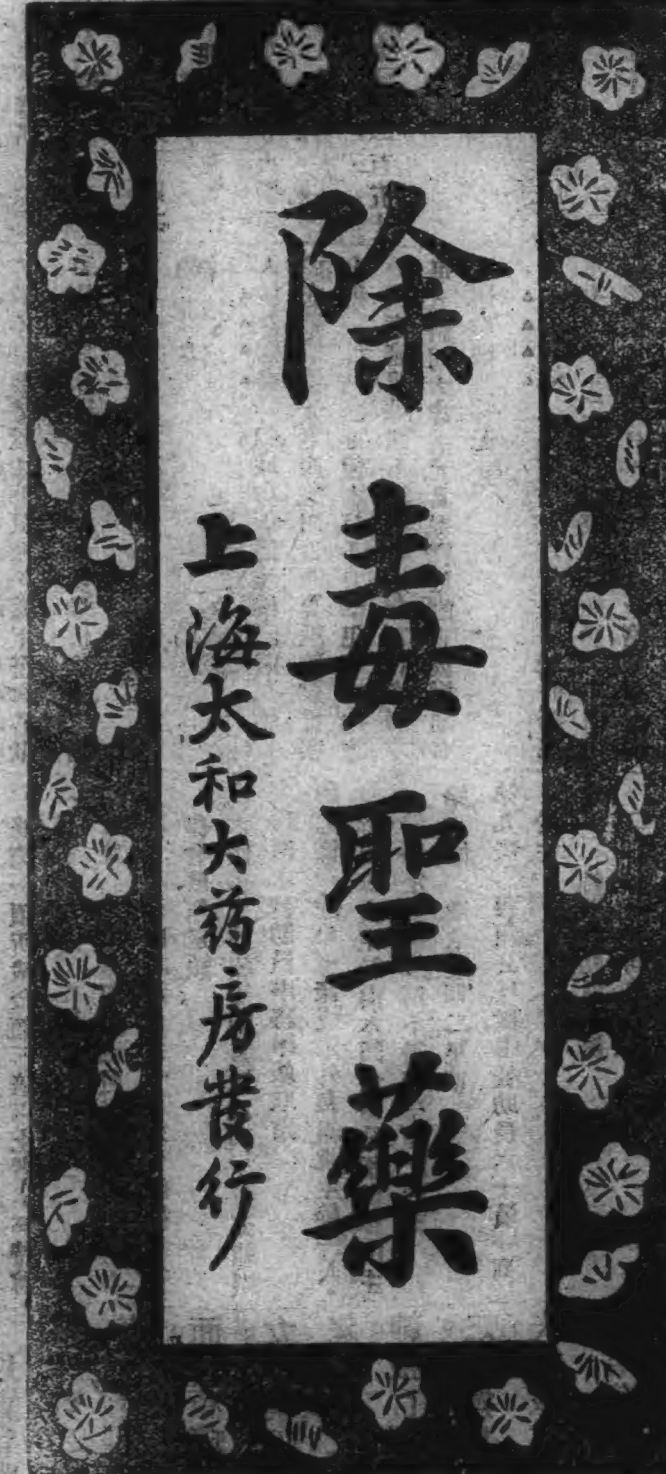 除毒聖藥
上海太和大药房發行